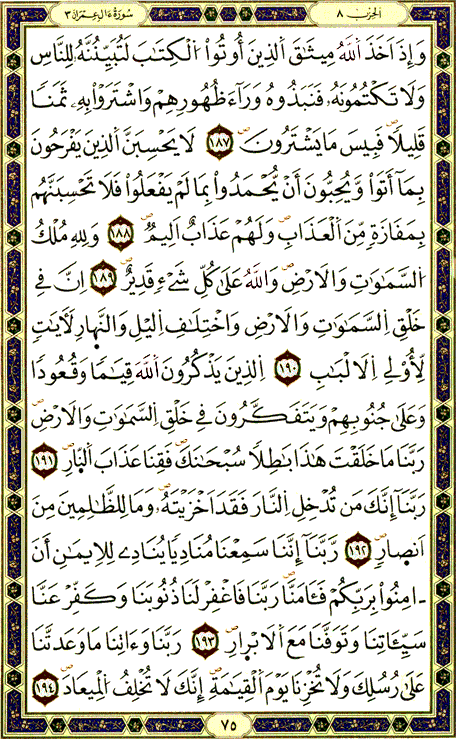 الحزب ٨
سورة ءال عمران ٣
وَإِذَ اَخَذَ اَللَّهُ مِيثَٰقَ اَلذِينَ أُوتُواْ اُلْكِتَٰبَ لَتُبَيِّنُنَّهُۥ لِلنَّاسِ
وَلَا تَكْتُمُونَهُۥ فَنَبَذُوهُ وَرَآءَ ظُهُورِهِمْ وَاشْتَرَوْاْ بِهِۦ ثَمَنٗا
قَلِيلٗا فَبِيسَ مَا يَشْتَرُونَ ١٨٧ لَا يَحْسِبَنَّ اَلذِينَ يَفْرَحُونَ
بِمَآ أَتَواْ وَّيُحِبُّونَ أَنْ يُّحْمَدُواْ بِمَا لَمْ يَفْعَلُواْ فَلَا تَحْسِبَنَّهُم
بِمَفَازَةٖ مِّنَ اَلْعَذَابِ وَلَهُمْ عَذَابٌ اَلِيمٌ ١٨٨ وَلِلهِ مُلْكُ
اُلسَّمَٰوَٰتِ وَالَارْضِ وَاللَّهُ عَلَىٰ كُلِّ شَےْءٖ قَدِيرٌ ١٨٩ اِنَّ فِے
خَلْقِ اِلسَّمَٰوَٰتِ وَالَارْضِ وَاخْتِلَٰفِ اِليْلِ وَالنَّهارِ لَأٓيَٰتٖ
لِّأُوْلِے اِلَالْبَٰبِ ١٩٠ اِلذِينَ يَذْكُرُونَ اَللَّهَ قِيَٰمٗا وَقُعُودٗا
وَعَلَىٰ جُنُوبِهِمْ وَيَتَفَكَّرُونَ فِے خَلْقِ اِلسَّمَٰوَٰتِ وَالَارْضِ
رَبَّنَا مَا خَلَقْتَ هَٰذَا بَٰطِلٗا سُبْحَٰنَكَ فَقِنَا عَذَابَ اَلنّ۪ارِ ١٩١
رَبَّنَآ إِنَّكَ مَن تُدْخِلِ اِلنَّارَ فَقَدَ اَخْزَيْتَهُۥ وَمَا لِلظَّٰلِمِينَ مِنَ
اَنص۪ارٖ ١٩٢ رَّبَّنَآ إِنَّنَا سَمِعْنَا مُنَادِيٗا يُنَادِے لِلِايمَٰنِ أَنَ
اٰمِنُواْ بِرَبِّكُمْ فَـَٔامَنَّا رَبَّنَا فَاغْفِرْ لَنَا ذُنُوبَنَا وَكَفِّرْ عَنَّا
سَيِّـَٔاتِنَا وَتَوَفَّنَا مَعَ اَلَابْر۪ارِ ١٩٣ رَبَّنَا وَءَاتِنَا مَا وَعَدتَّنَا
عَلَىٰ رُسُلِكَ وَلَا تُخْزِنَا يَوْمَ اَلْقِيَٰمَةِ إِنَّكَ لَا تُخْلِفُ اُلْمِيعَادَ ١٩٤
٧٥